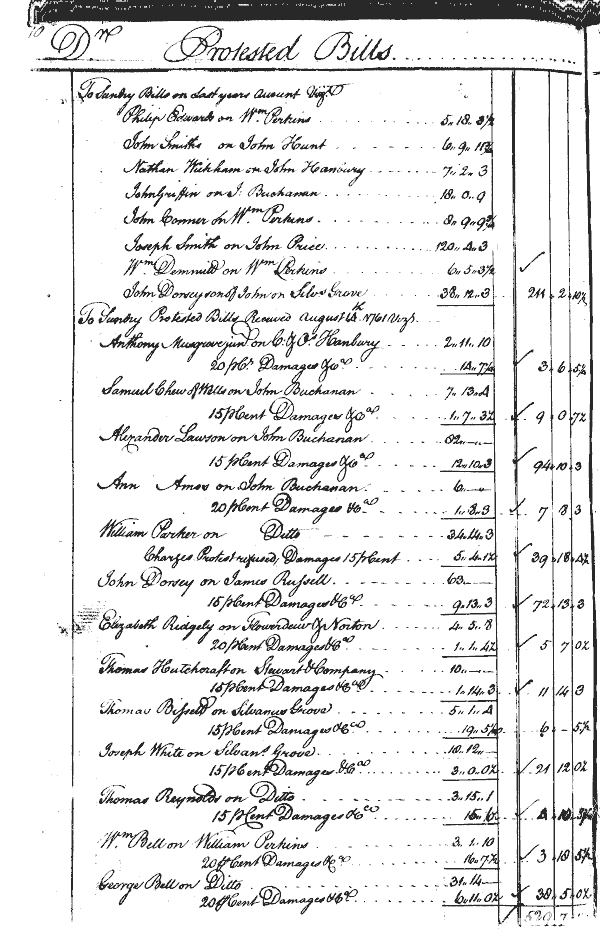 10 Dr Protested Bills.
To Sundry Bills on Last years account Vizt
Philip Edwards on Wm Perkins 5.. 18. 3½
John Smith on John Hunt 6.. 9.. 11¾
Nathan Wickham on John Hanbury 7.. 2.. 3
John Griffin on J. Buchanan 18. 0.. 9
John Conner on Wm Perkins 8.. 9.. 9¾
Joseph Smith on John Price 120.. 4.. 3
Wm Demmitt on Wm Perkins 6.. 5.. 3½
John Dorsey son of John on Silvs Grove 38.. 12.. 3 211.. 2.. 10½
To Sundry Protested Bills Received August 6th 1761 Vizt
Anthony Musgrove junr on C. & O. Hanbury 2.. 11.. 10
20 pCt Damages &ca 14.. 7½ 3.. 6.. 5½
Samuel Chew of Wells on John Buchanan 7.. 13.. 4
15 pCent Damages &ca 1.. 7.. 3½ 9 0.. 7½
Alexander Lawson on John Buchanan 82..
15 pCent Damages &ca 12.. 10.. 3 94.. 10.. 3
Ann Amos on John Buchanan 6..
20 pCent Damages &ca 1.. 8.. 3 7 8 3
William Parker on Ditto 34.. 14.. 3
Charges Protest refused, Damages 15 pCent 5.. 4.. 1½ 39.. 18.. 4½
John Dorsey on James Russell 63..
15 pCent Damages &ca 9.. 13.. 3 72.. 13.. 3
Elizabeth Ridgely on Howerdew & Norton 4.. 5.. 8
20 pCent Damages &ca 1.. 1.. 4½ 5 7 0½
Thomas Hutchcraft on Stewart & Company 10..
15 pCent Damages &ca 1.. 14.. 3 11 14 3
Thomas Bissett on Silvanus Grove 5.. 1.. 4
15 pCent Damages &ca 19.. 5½ 6 5½
Joseph White on Silvans Grove 18. 12..
15 pCent Damages &ca 3.. 0.. 0½ 21 12 0½
Thomas Reynolds on Ditto 3.. 15.. 1
15 pCent Damages &ca 15.. 6½ 4 10
Wm Bell on William Perkins 3. 1. 10
20 pCent Damages &ca 16.. 7½ 3.. 18 5½
George Bell on Ditto 31. 14
20 pCent Damages &ca 6.. 11.. 0½ 38.. 5.. 0½
520 7